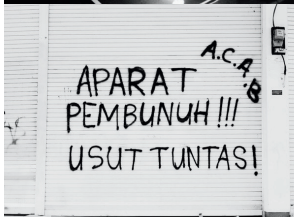 A.C.A.B
APARAT
PEMBUNUH !!!
USUT TUNTAS!